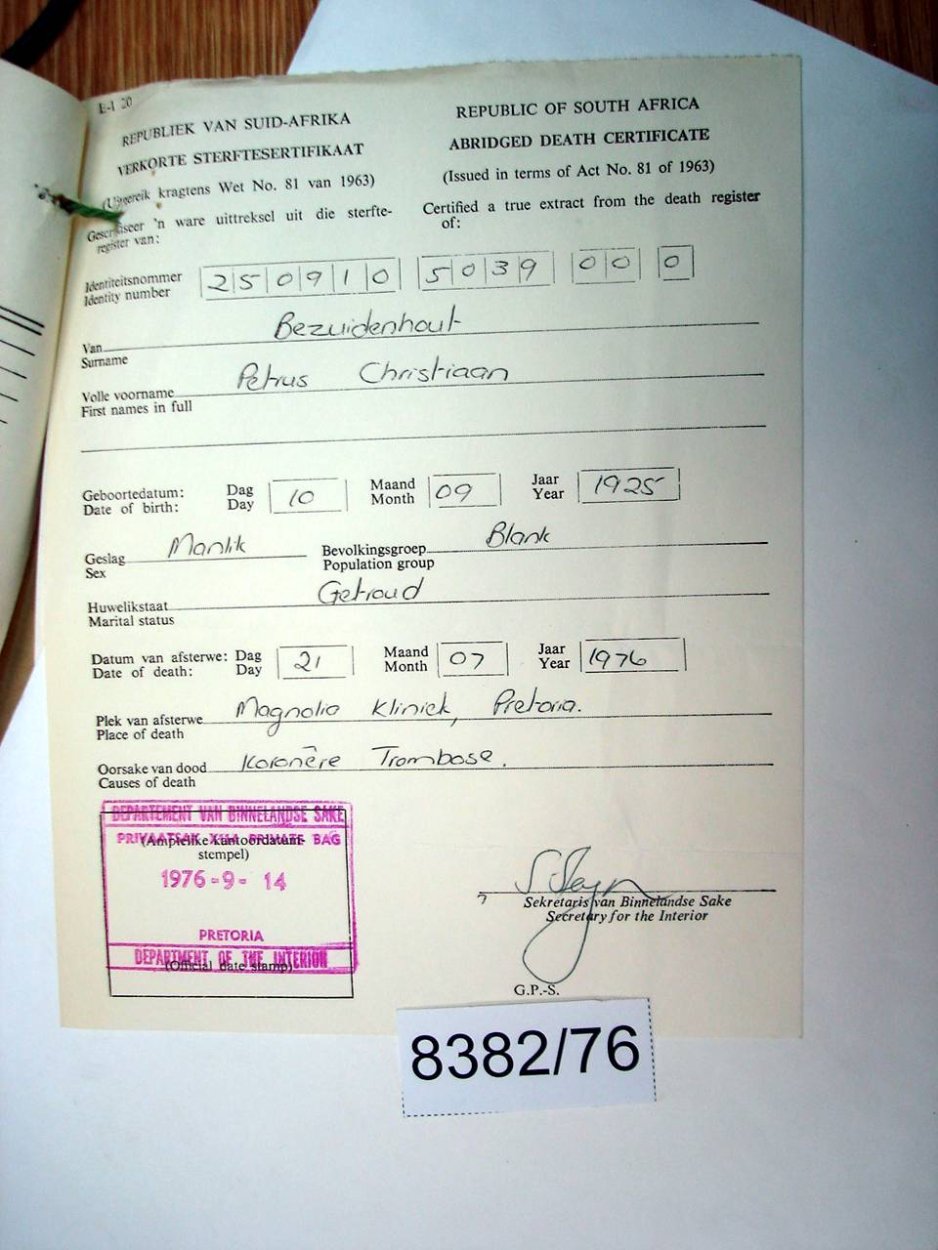 E-1 20
REPUBLIEK VAN SUID-AFRIKA
VERKORTE STERFTESERTIFIKAAT
(Uitgereik kragtens Wet No. 81 van 1963)
Gesertifiseer 'n ware uittreksel uit die sterfte-
register van:
REPUBLIC OF SOUTH AFRICA
ABRIDGED DEATH CERTIFICATE
(Issued in terms of Act No. 81 of 1963)
Certified a true extract from the death register
of:
Identiteitsnommer 250910 5039 00 0
Identity number
Van Bezuidenhout
Surname
Volle voorname Petrus Christiaan
First names in full
Geboortedatum: Dag 10 Maand 09 Jaar 1925
Date of birth: Day Month Year
Geslag Manlik Bevolkingsgroep Blank
Sex Population group
Huwelikstaat Getroud
Marital status
Datum van afsterwe: Dag 21 Maand 07 Jaar 1976
Date of death: Day Month Year
Plek van afsterwe Magnolia Kliniek, Pretoria.
Place of death
Oorsake van dood Koronêre Trombose.
Causes of death
DEPARTEMENT VAN BINNELANDSE SAKE
PRIVAATSAK PRIVATE BAG
(Amptelike kantoordatum-
stempel)
1976-9-14
PRETORIA
DEPARTMENT OF THE INTERIOR
(Official date stamp)
Sekretaris van Binnelandse Sake
Secretary for the Interior
G.P.-S.
8382/76